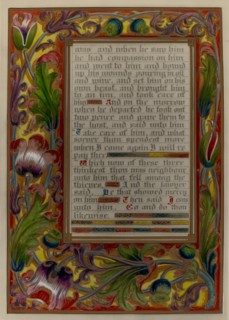 way and when he saw him
he had compassion on him
and went to him and bound
up his wounds pouring in oil
and wine, and set him on his
own beast, and brought him
to an inn, and took care of
him And on the morrow
when he departed he took out
two pence and gave them to
the host, and said unto him
Take care of him, and what
soever thou spendest more
when I come again I will re
pay thee
Which now of these three
thinkest thou was neighbour
unto him that fell among the
thieves. And the lawyer
said, He that showed mercy
on him Then said
unto him, Go and do thou
likewise.